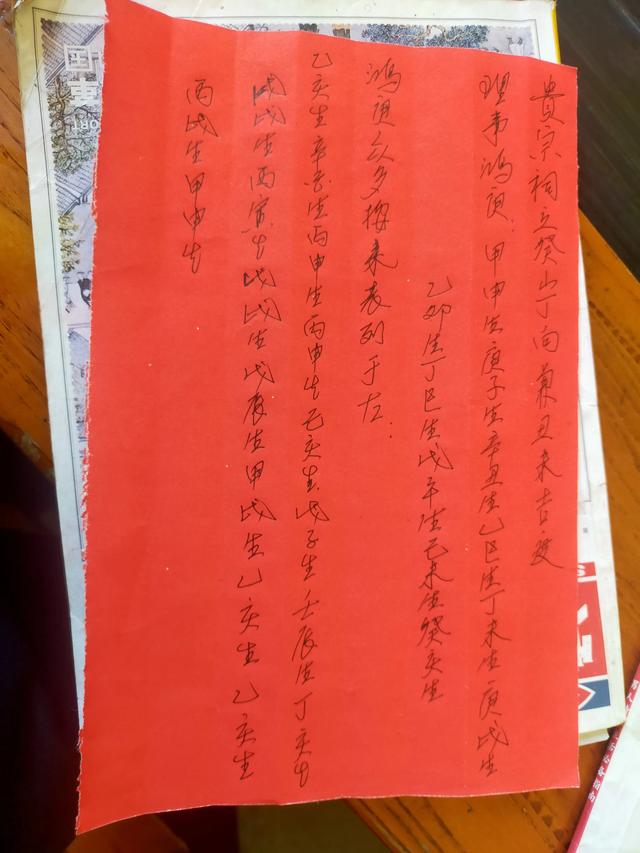 貴宗祠立癸山丁向兼丑未吉度
理事鴻庚 甲申生庚子生辛丑生乙巳生丁未生庚戌生
乙卯生丁巳生戊午生己未生癸亥生
鴻庚众多 未表列于左:
乙亥生辛 生丙申生丙申生己亥生戊子生壬辰生丁亥生
戊戌生丙寅生戊戌生戊辰生甲戌生乙亥生乙亥生
丙戌生甲申生